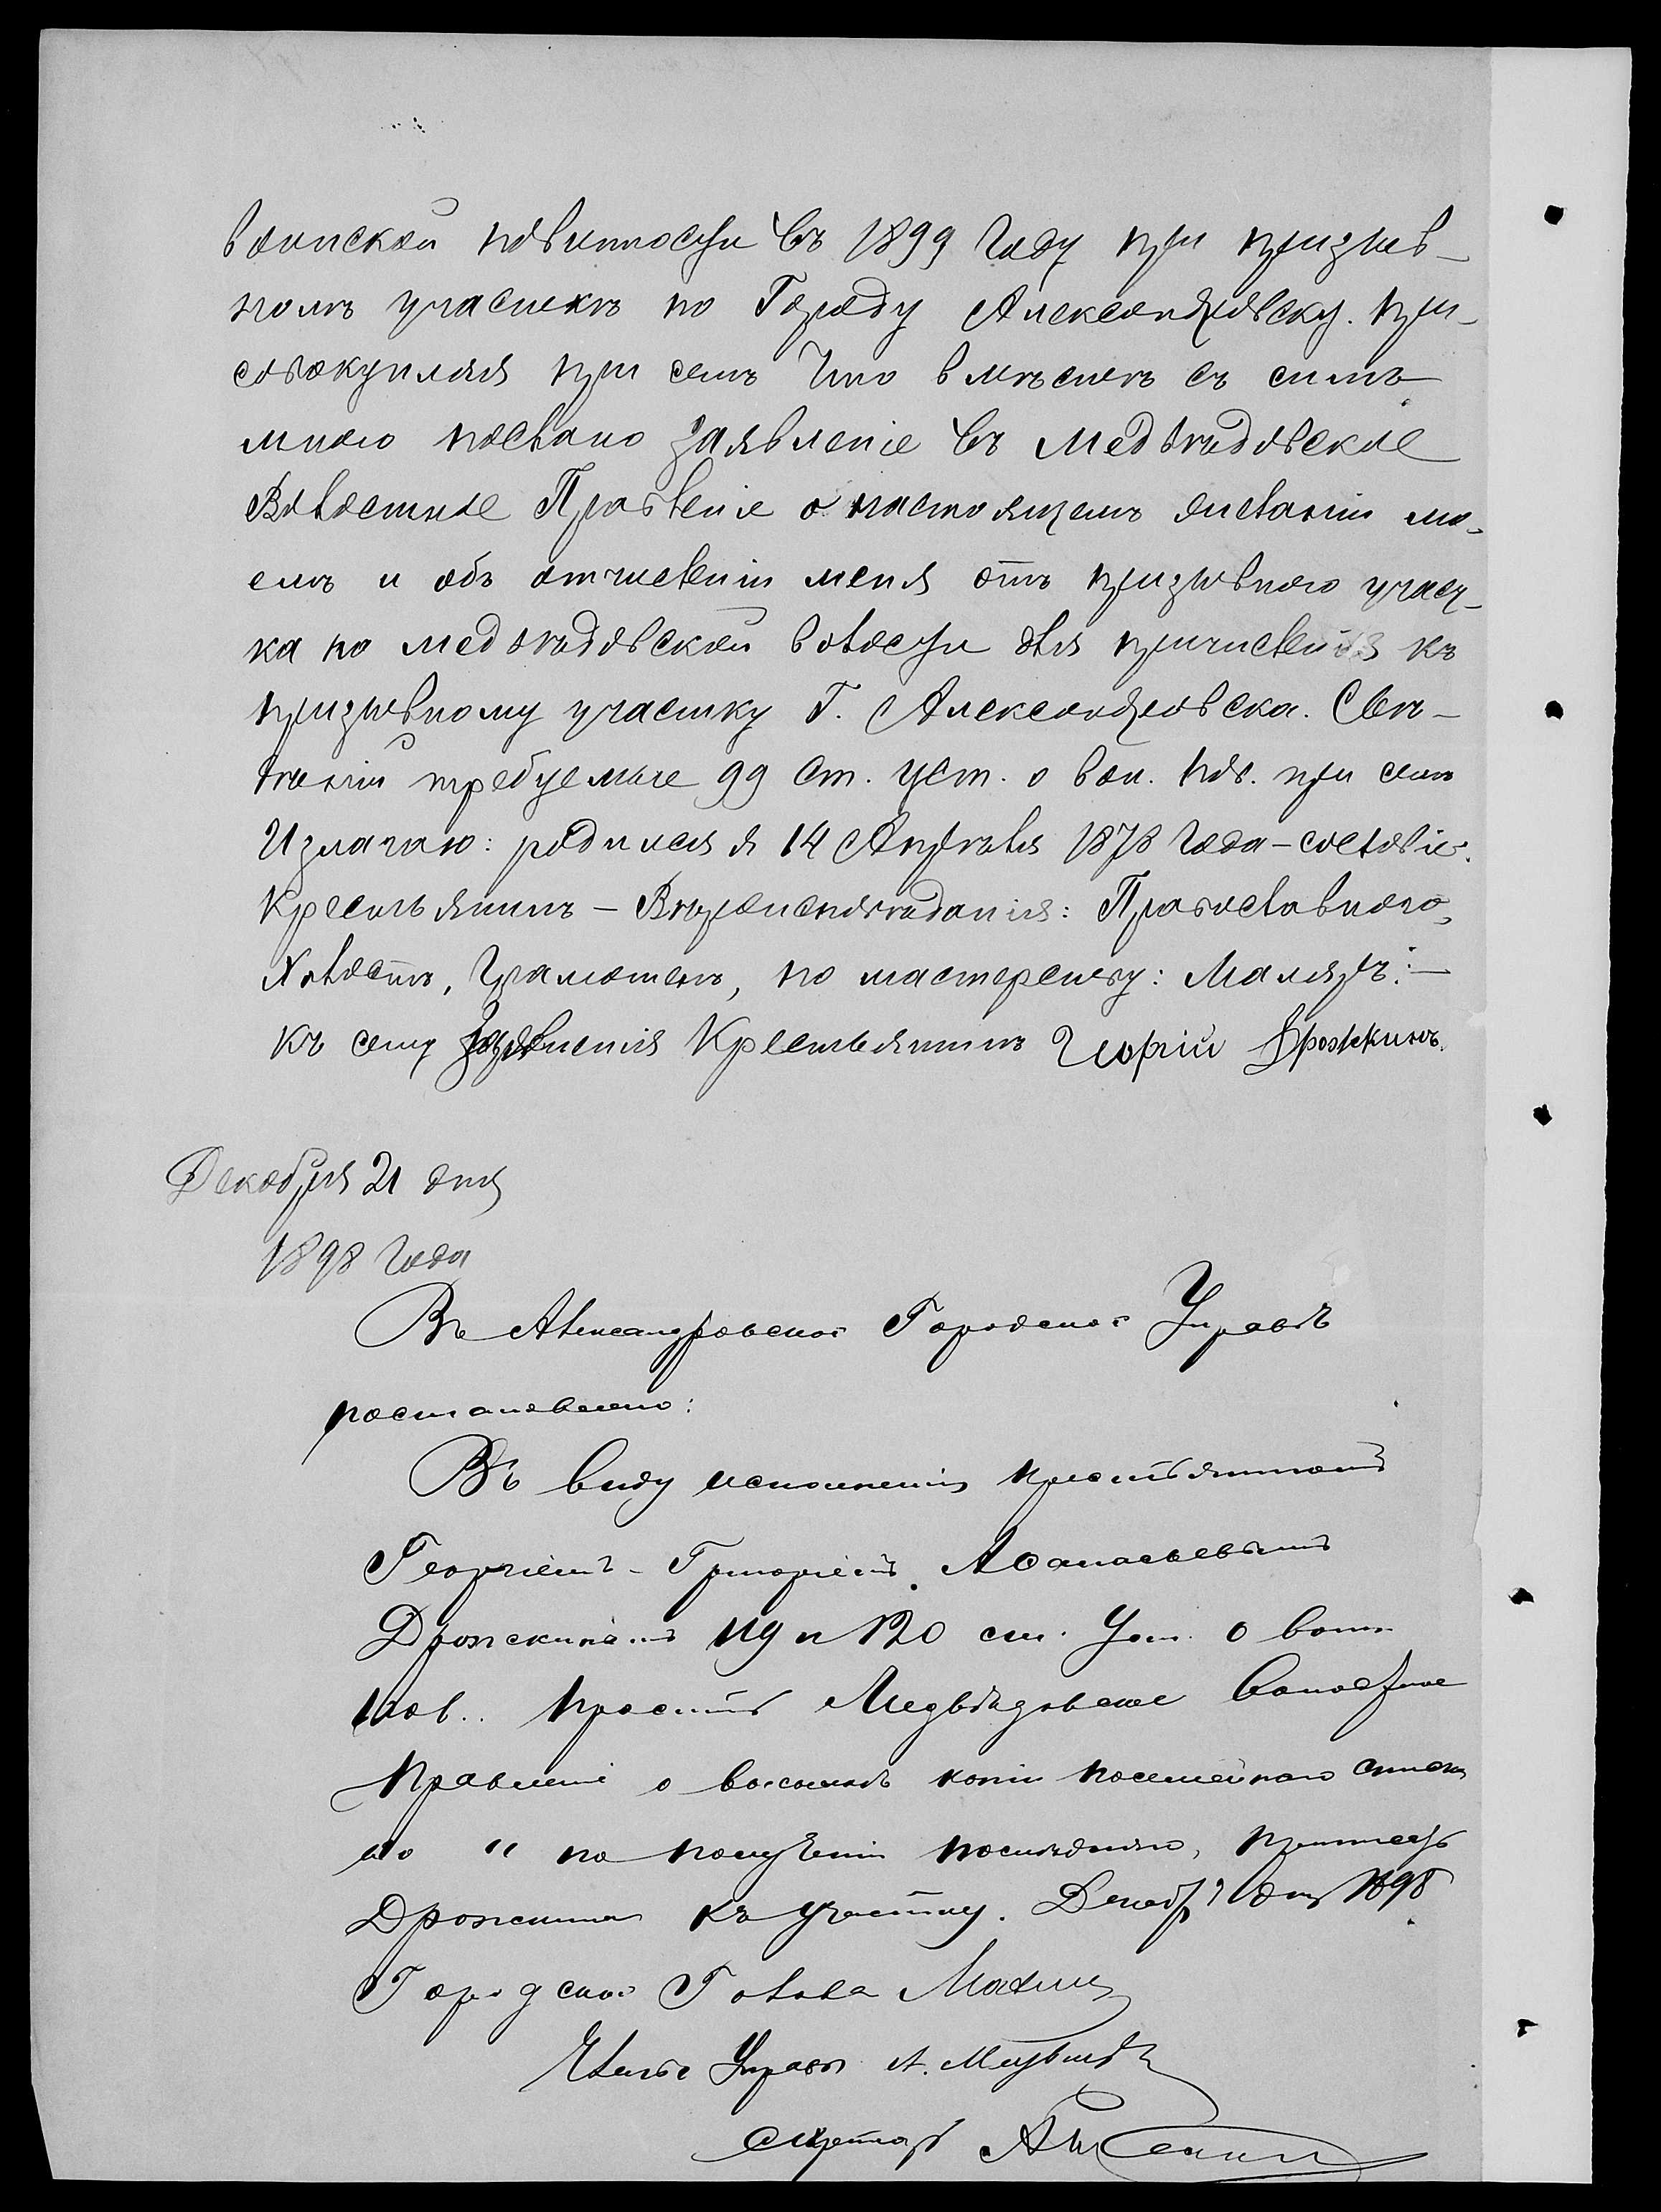 воинской повинности Въ 1899 Году при призыв-
номъ участкѣ по Городу Александровску. при-
совокупляя при семъ Что вмѣстѣ съ симъ
мною послано Заявленіе Въ Медвѣдовское
Волостное Правленіе о настоящемъ желаніи мо-
емъ и объ отчисленіи меня отъ призывного участ-
ка по медвѣдовской волости для причисленія къ
призывному участку Г. Александровска. Свѣ-
дѣнія требуемые 99 Ст. Уст. о вои. пов. при семъ
Излагаю: родился я 14 Апрѣля 1878 Года – сословіе:
Крестьянинъ – Вѣроисповѣданія: Православного,
Холостъ, Грамотенъ, по мастерству: Маляръ: –
къ сему Заявленія Крестьянинъ Георгій Дрожжинъ.
Декабря 21 дня
1898 Года
Въ Александровской Городской Управѣ
постановлено:
Въ виду исполненія крестьяниномъ
Георгіемъ - Григоріемъ Аѳанасьевымъ
119 и 120 ст. Уст. о воин
пов.. просить Медвѣдовское Волостное
Правленіе о высылкѣ копіи посемейнаго списка
по полученіи послѣдняго,
къ участку. Декабр 21 дня 1898
Городской Голова
Членъ Управы А.
Секретарь